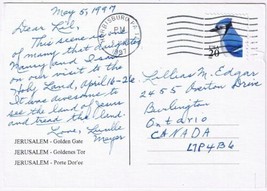 May 5, 1997
Dear Lil,
This scene is
of many that daughter
Nancy and I saw
on our visit to the
Holy Land, April 16-26
It was awesome to
see the land of Jesus
and tread the land.
Love, Lucille
Moyer
JERUSALEM - Golden Gate
JERUSALEM - Goldenes Tor
JERUSALEM - Porte Dor'ee
HARRISBURG PA
PM
1997
USA
20
Lillias M. Edgar
2455 Overton Drive
Burlington
Ontario
CANADA
L7P4B6